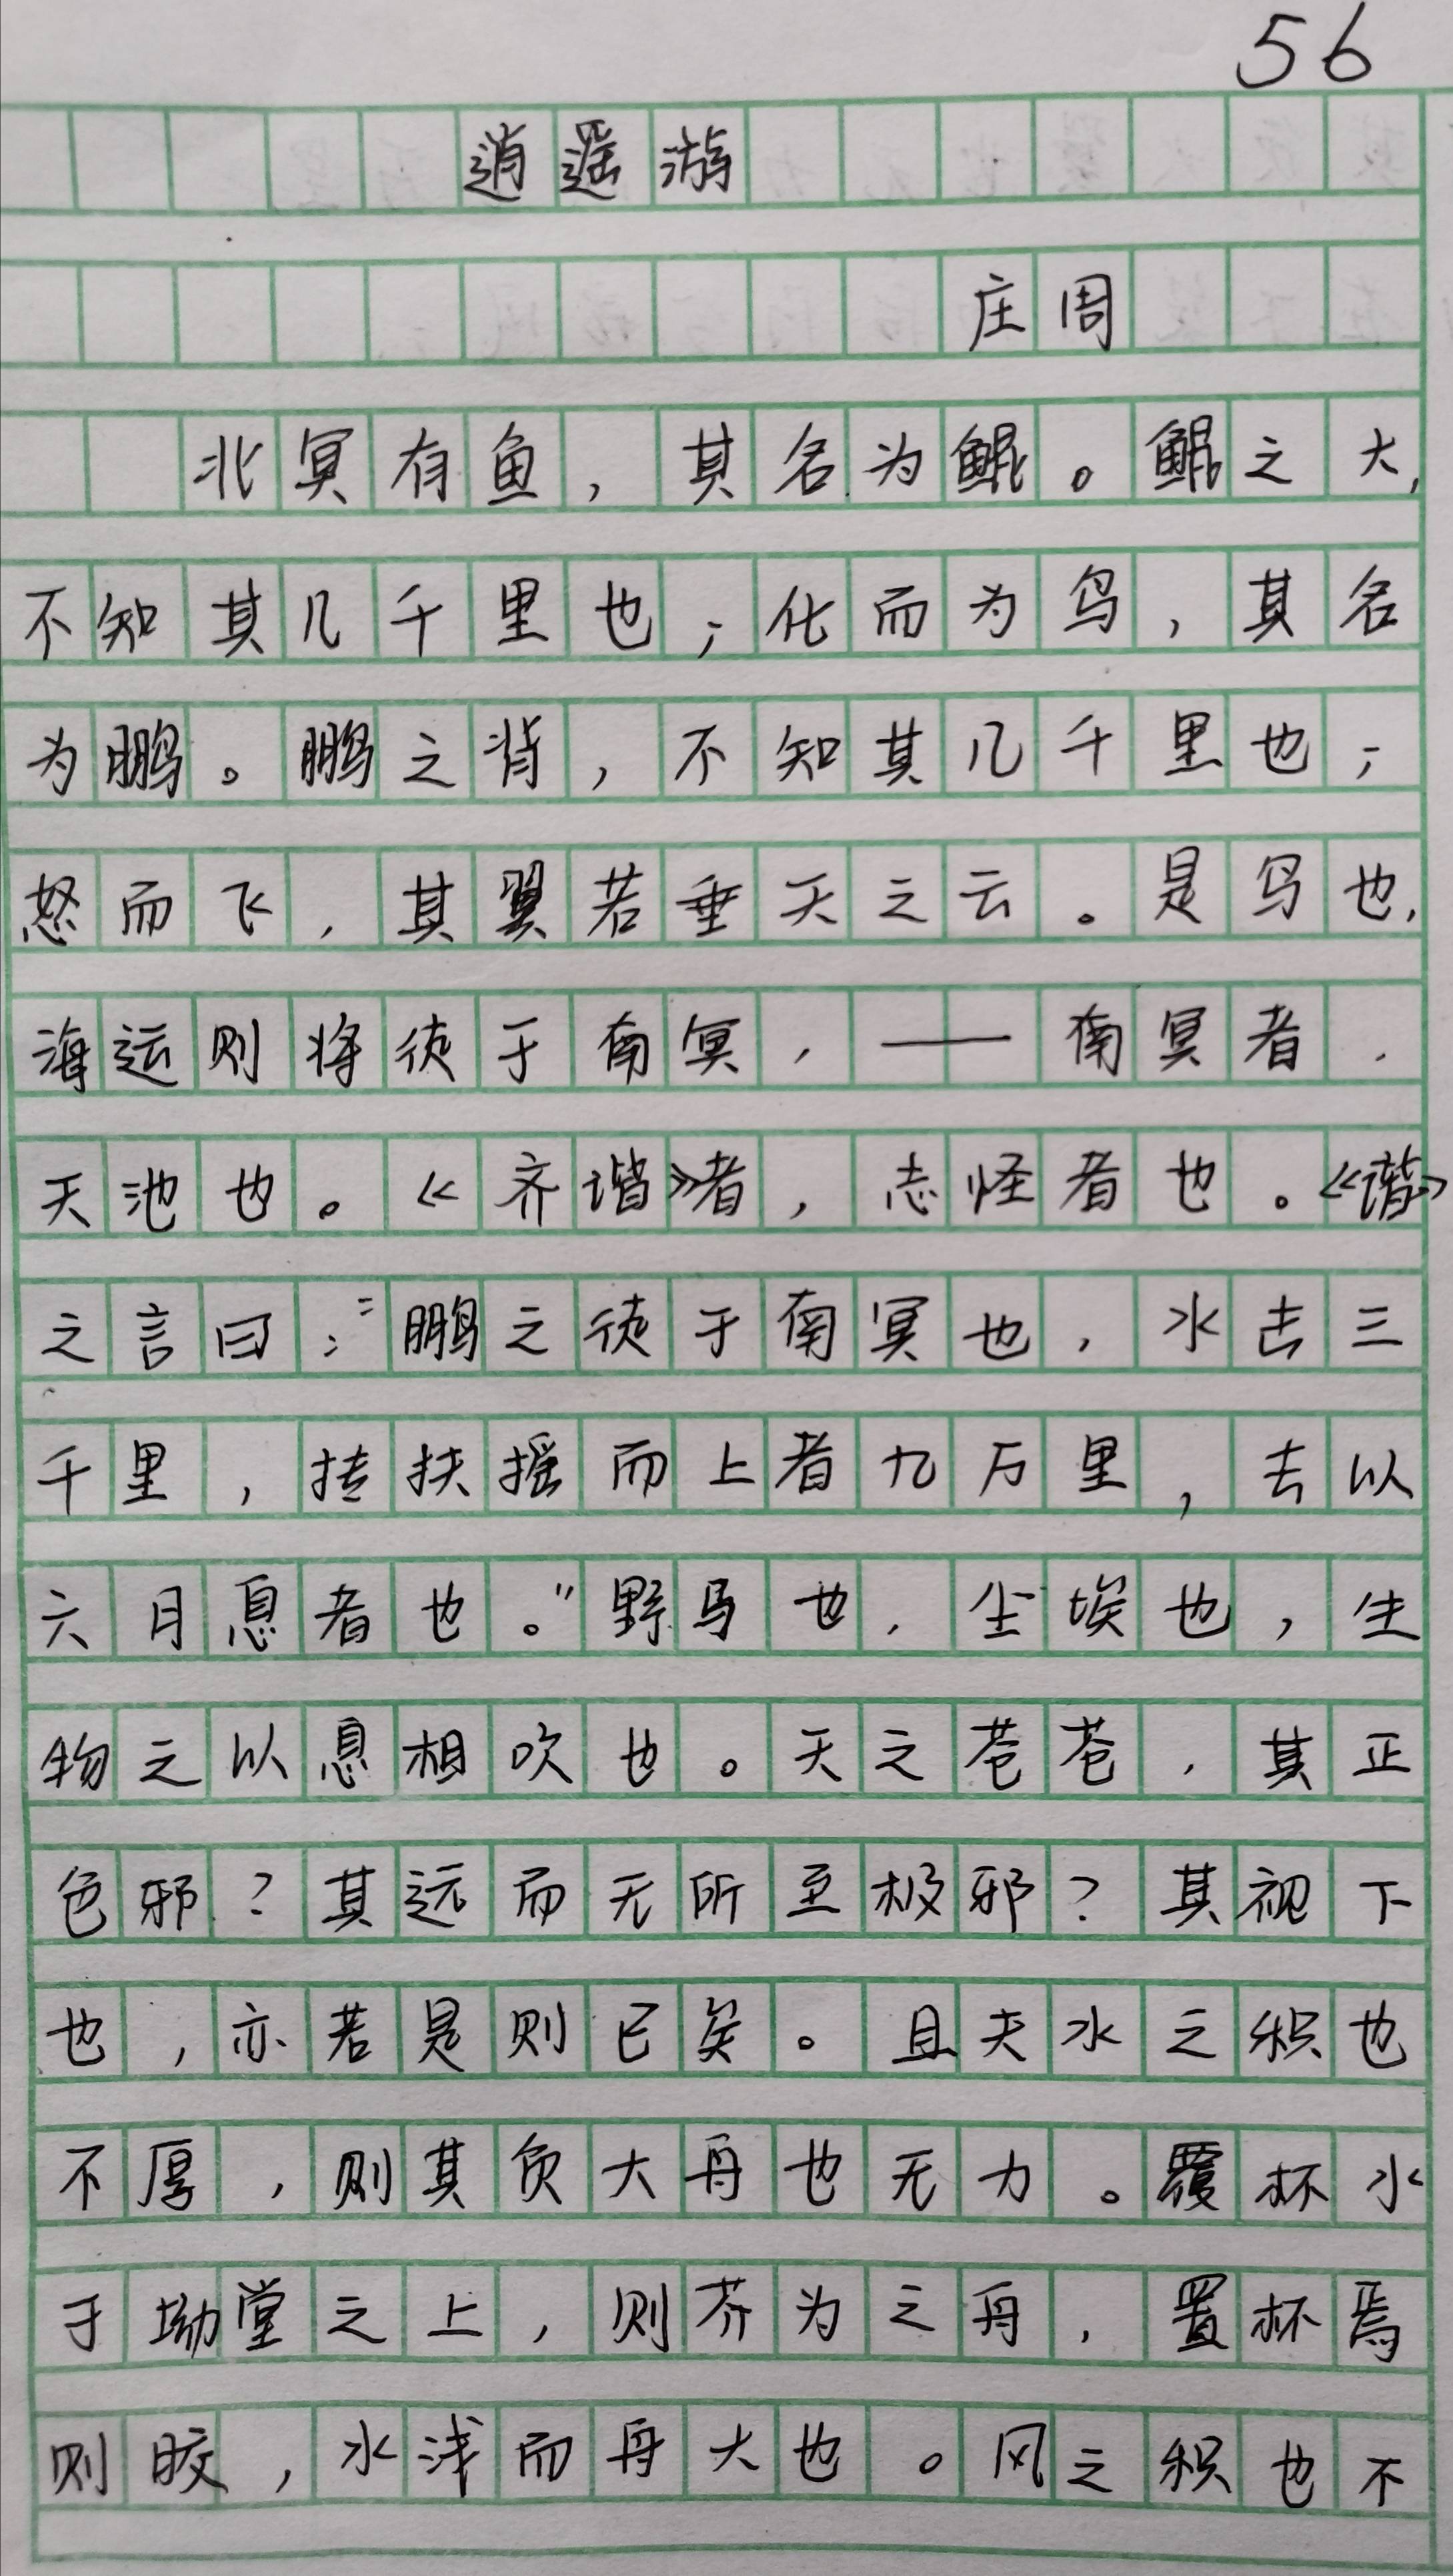 56
逍遥游
庄周
北冥有鱼，其名为鲲。鲲之大，
不知其几千里也；化而为鸟，其名
为鹏。鹏之背，不知其几千里也；
怒而飞，其翼若垂天之云。是鸟也，
海运则将徙于南冥，——南冥者，
天池也。《齐谐》者，志怪者也。《谐》
之言曰：“鹏之徙于南冥也，水击三
千里，抟扶摇而上者九万里，去以
六月息者也。”野马也，尘埃也，生
物之以息相吹也。天之苍苍，其正
色邪？其远而无所至极邪？其视下
也，亦若是则已矣。且夫水之积也
不厚，则其负大舟也无力。覆杯水
于坳堂之上，则芥为之舟，置杯焉
则胶，水浅而舟大也。风之积也不